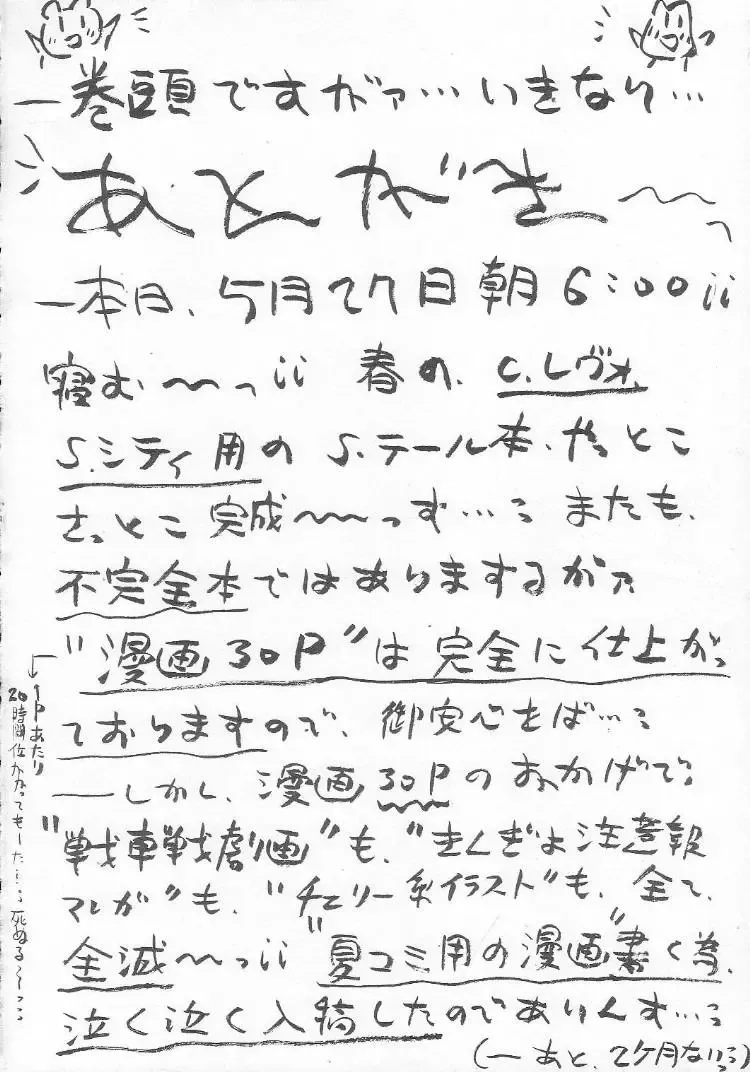 ―巻頭ですがァ…いきなり…
あとがき〜〜っ
―本日、5月27日朝6:00¡¡
寝む〜〜っ¡¡ 春の、C.レヴォ、
S.シティ用の S.テール本、やっとこ
さっとこ 完成〜〜〜っす…: またも、
不完全本ではありまするがァ
"漫画30P"は完全に仕上がっ
ておりますので、御安心をば…:
―しかし、漫画30Pのおかげで:
"戦車戦劇画"も、"きんぎょ注意報
マンガ"も、"チェリー系イラスト"も、全て、
全滅〜〜っ¡¡ "夏コミ用の漫画"書く為、
泣く泣く入稿したのでありんす…:
(―あと、2ヶ月ないっ:)
←1Pあたり
20時間位かかってもーた…: 死ぬる〜っ: